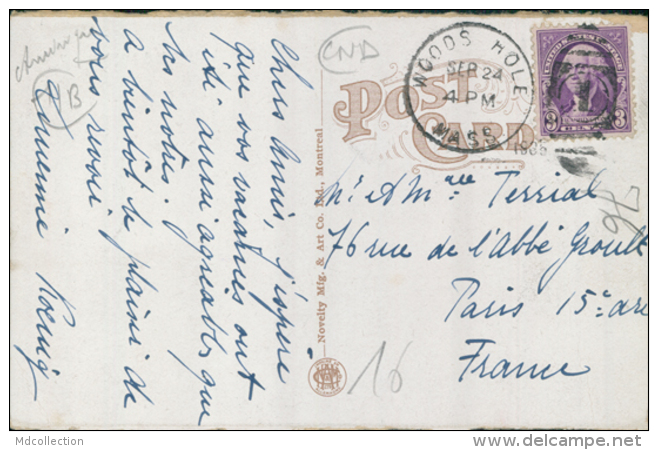 Chers Amis, J'espère
que vos vacances ont
été aussi agréables que
les nôtres.
A bientôt le plaisir de
vous revoir
Koenig
CND
HB
POST CARD
Novelty Mfg. & Art Co. Ltd. Montreal
WOODS HOLE
SEP 24
4 PM
MASS.
UNITED STATES POSTAGE
3 3
Mr & Mme Terrial
76 rue de l'Abbé Groult
Paris 15e arr
France
76
16
Mdcollection
www.delcampe.net